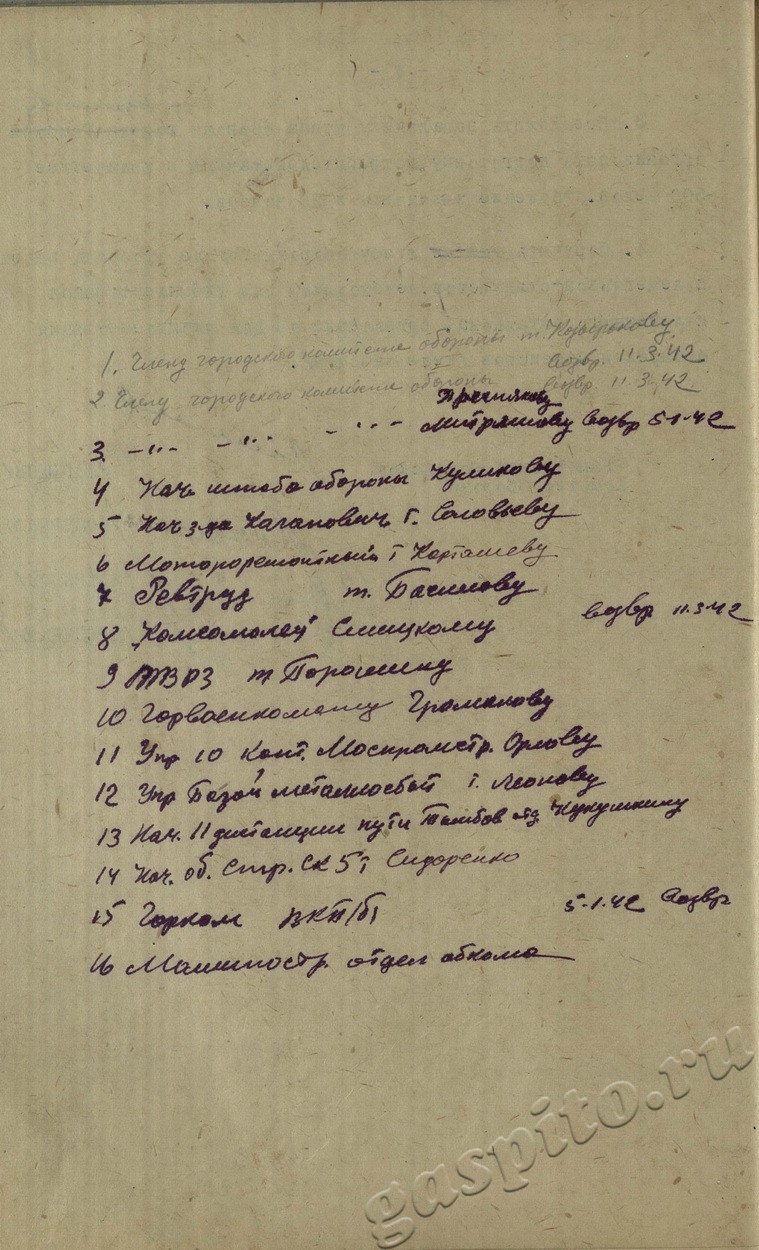 1. Члену городского комитета обороны т. Козырькову
возвр. 11.3.42
2. Члену городского комитета обороны возвр 11.3.42
3. -"- -"- -"- Митряшову возвр 5-1-42
4 Нач. штаба обороны Куликову
5 Нач з-да Каганович т. Соловьеву
6 Мотороремонтный т Карташеву
7 Ревтруд т. Басилову
8 Комсомолец Слицкому возвр 11.3.42
9 ТВРЗ т Порошину
10 Горвоенкомату Громакову
11 Упр 10 Конт. Орлову
12 Упр Базой металлосбыт т. Леонову
13 Нач. 11 дистанции пути Тамбов Кукушкину
14 Нач. об. стр. СК 5 т Сидоренко
15 Горком ВКП/б/ 5.1.42 возвр
16 Машиностр. отдел обкома
gaspito.ru